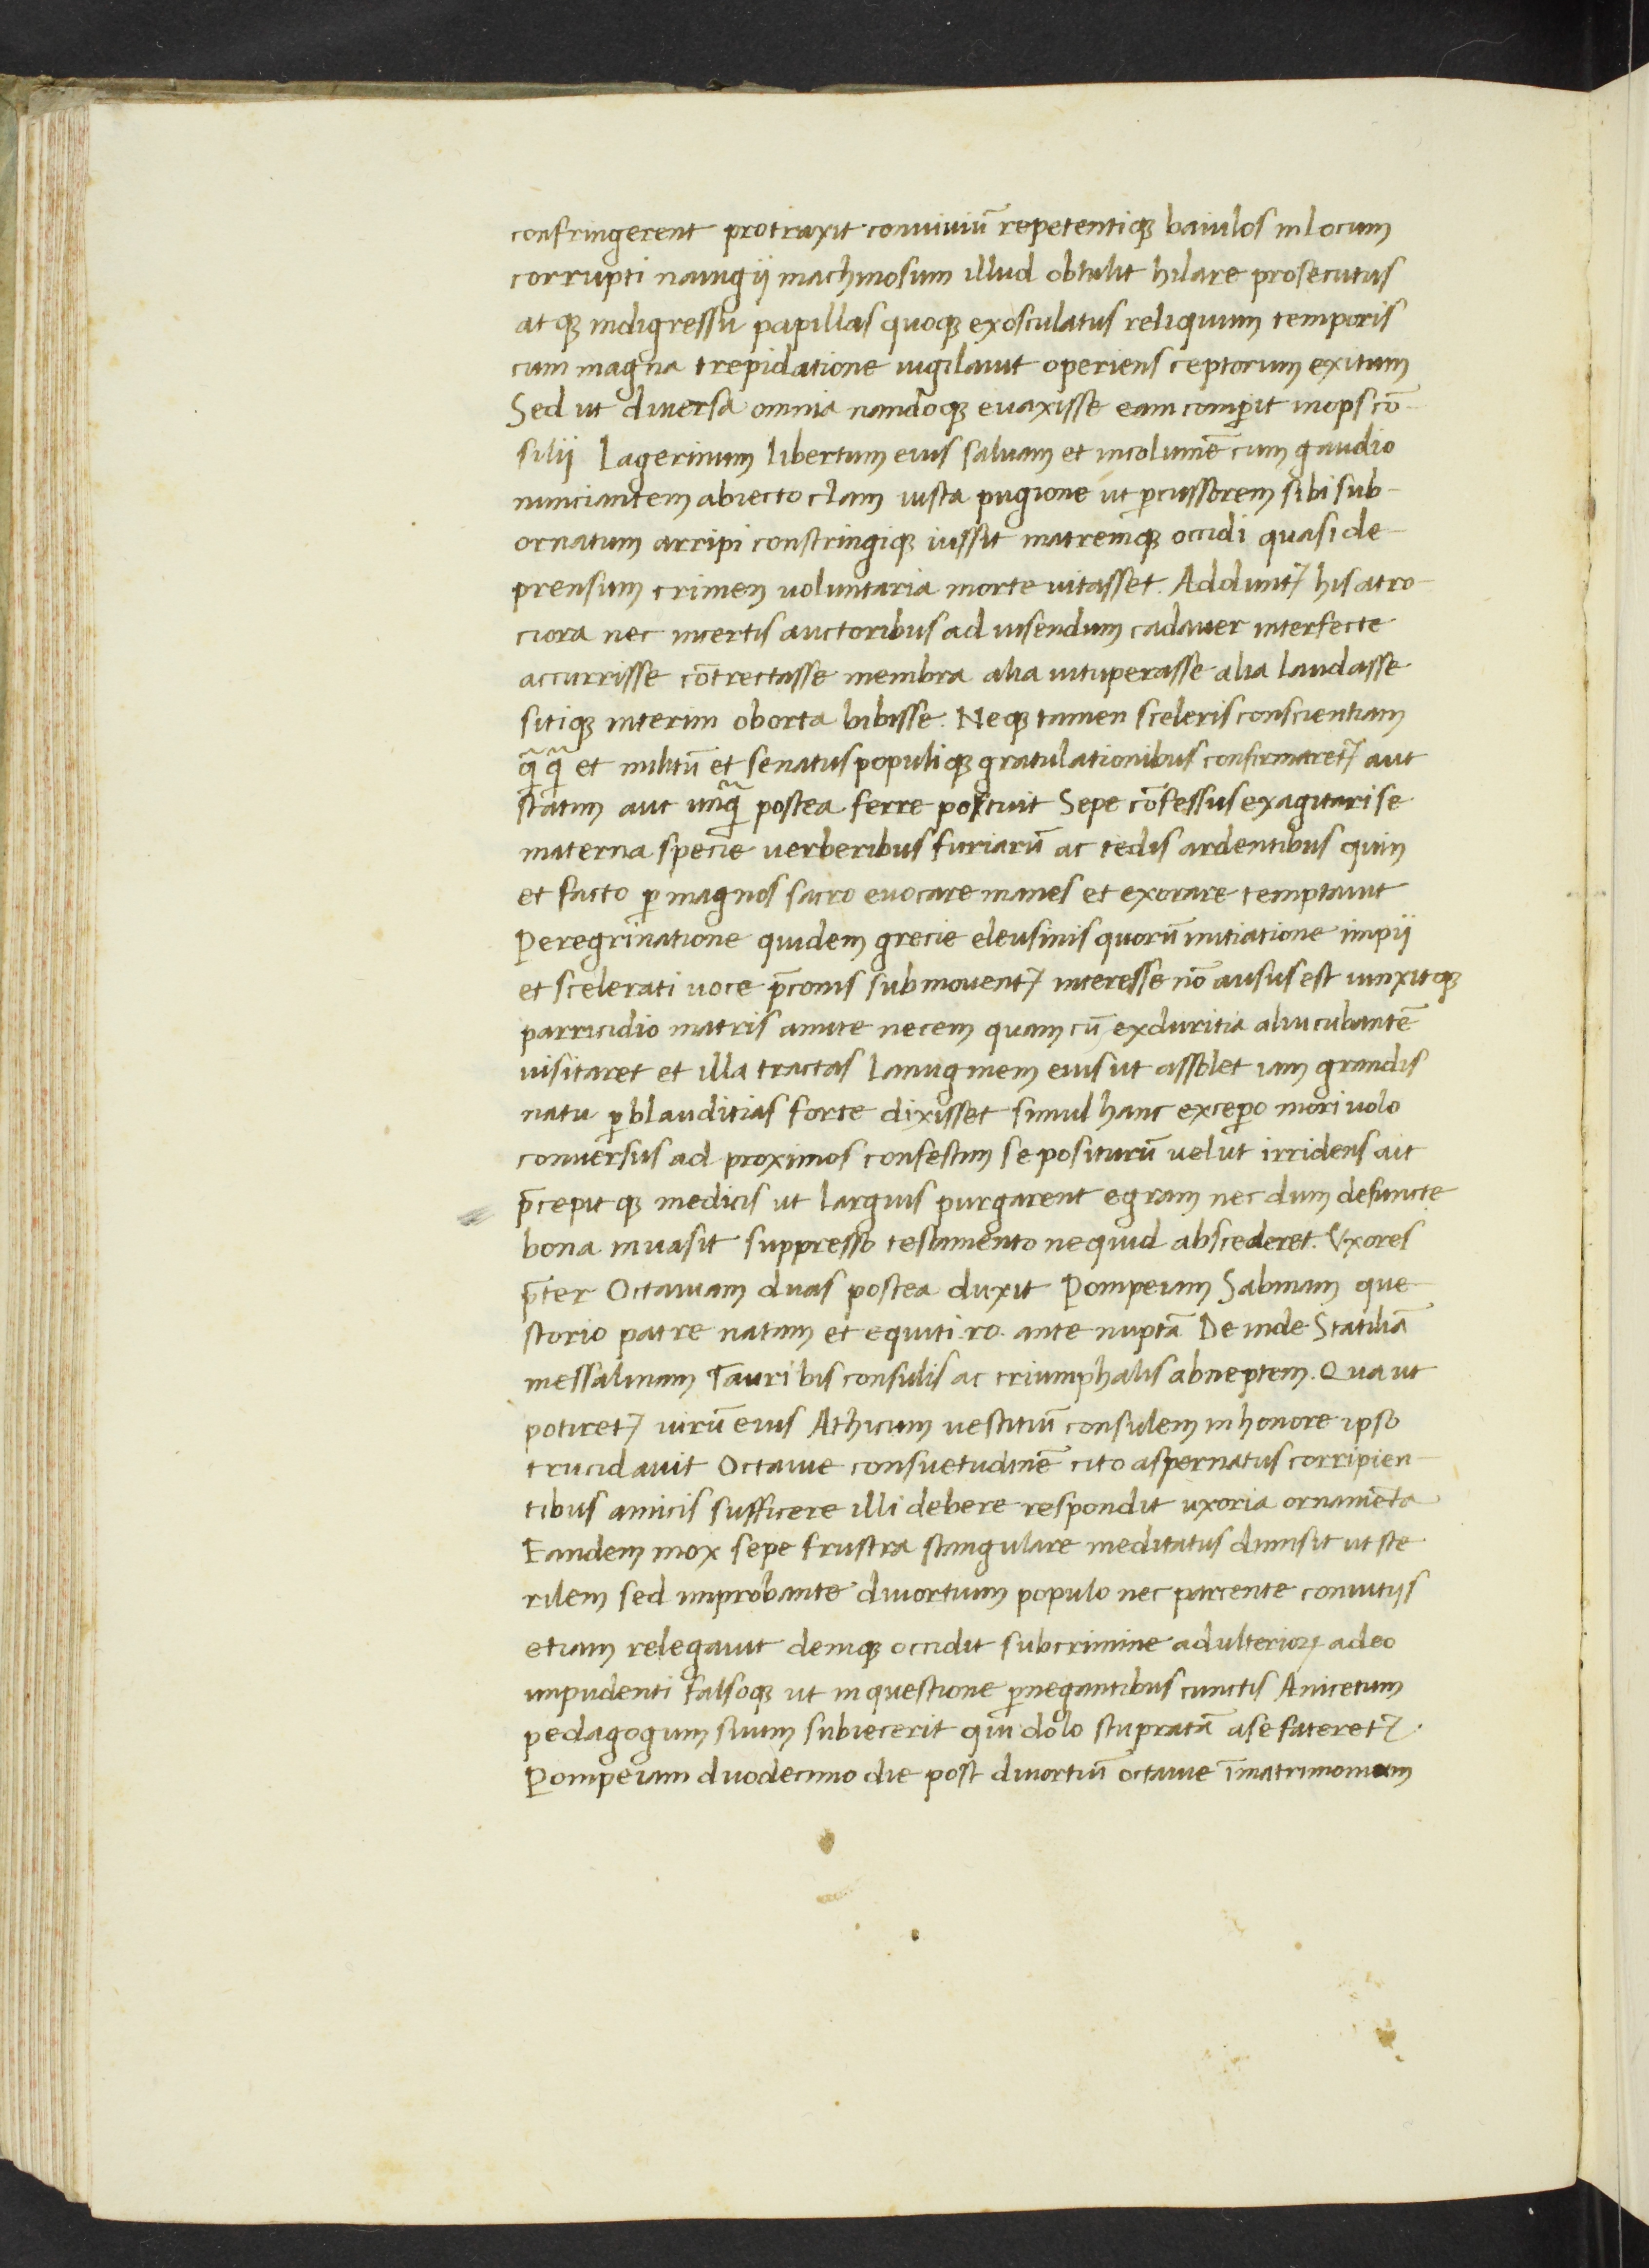 confringerent protraxit conuiuiū repetentiqꝫ baiulos inlocum
corrupti nauigij machinosum illud obtulit hilare prosecutus
atqꝫ indigressu papillas quoqꝫ exosculatus reliquum temporis
cum magna trepidatione uigilauit operiens ceptorum exitum
Sed ut diuersa omnia nandoqꝫ euaxisse eam comꝑit inops cō-
silij Lagerinum libertum eius saluam et incolumē cum gaudio
nunciantem abiecto clam iusta pugione ut ꝑcussorem sibi sub-
ornatum arripi constringiqꝫ iussit matremqꝫ occidi quasi de-
prensum crimen uoluntaria morte uitasset. Addunt᷑ his atro-
ciora nec incertis auctoribus ad uisendum cadauer interfecte
accurrisse cōtrectasse membra alia uituperasse alia laudasse
sitiqꝫ interim oborta bibisse. Neqꝫ tamen sceleris conscientiam
qꝗ̃qꝗ̃ et militū et senatus populiqꝫ gratulationibus confirmaret᷑ aut
statim aut unqꝗ̃ postea ferre potuit Sepe cōfessus exagitari se
materna specie uerberibus furiarū ac tedis ardentibus quin
et facto ꝑ magnos sacro euocare manes et exorare temptauit
Peregrinatione quidem grecie eleusinis quorū initiatione impij
et scelerati uoce p̄conis submouent᷑ interesse nō ausus est iunxitqꝫ
parricidio matris amite necem quam cū exduritia aluicubantē
uisitaret et illa tractas lanuginem eius ut assolet iam grandis
natu ꝑ blauditias forte dixisset simul hanc exceꝑo mori uolo
conuersus ad proximos confestim se positurū uelut irridens ait
p̄cepitqꝫ medicis ut largius purgarent egram nec dum defuncte
bona inuasit suppresso testamento nequid abscederet. Vxores
p̄ter Octauiam duas postea duxit Pompeiam Sabinam que
storio patre natam et equiti ro. ante nuptā Deinde Statiliā
messalinam Tauri bis consulis ac triumphalis abneptem. Qua ut
potiret᷑ uirū eius Athicum uestitiū consulem in honore ipso
trucidauit Octauie consuetudinē cito aspernatus corripien-
tibus amicis sufficere illi debere respondit uxoria ornamēta
Eandem mox sepe frustra stangulare meditatus dimisit ut ste
rilem sed improbante diuortium populo nec parcente conuitijs
etiam relegauit deniqꝫ occidit subcrimine adulterioꝝ adeo
impudenti falsoqꝫ ut in questione ꝑnegantibus cunctis Anicetum
pedagogum suum subiecerit qui dolo stupratā a se fateret᷑.
Pompeiam duodecimo die post diuortiū octauie īmatrimonium